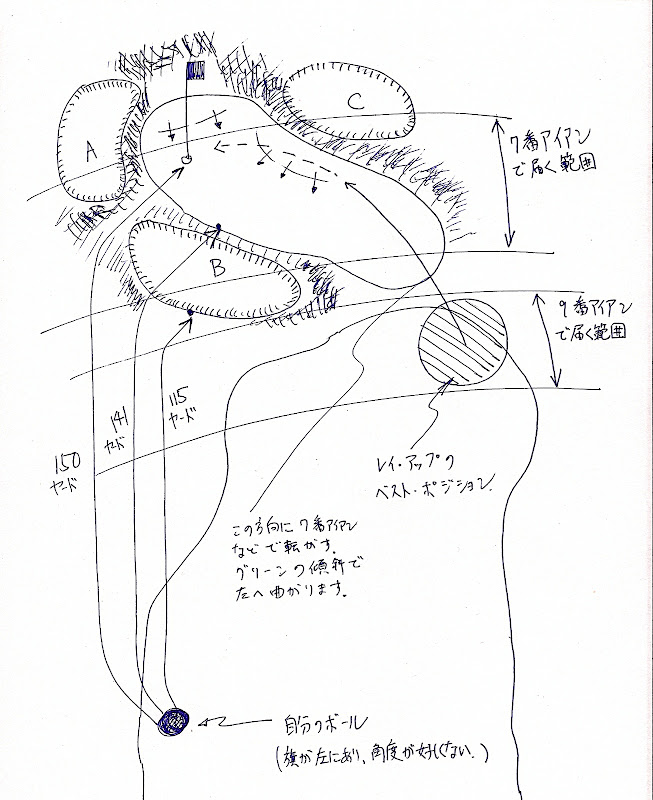 A
C
B
7番アイアン
で届く範囲
9番アイアン
で届く範囲
115
ヤード
141
ヤード
150
ヤード
レイ・アップの
ベスト・ポジション.
この方向に7番アイアン
などで転がす.
グリーンの傾斜で
左へ曲がります.
自分のボール
(旗が左にあり、角度が好しくない.)